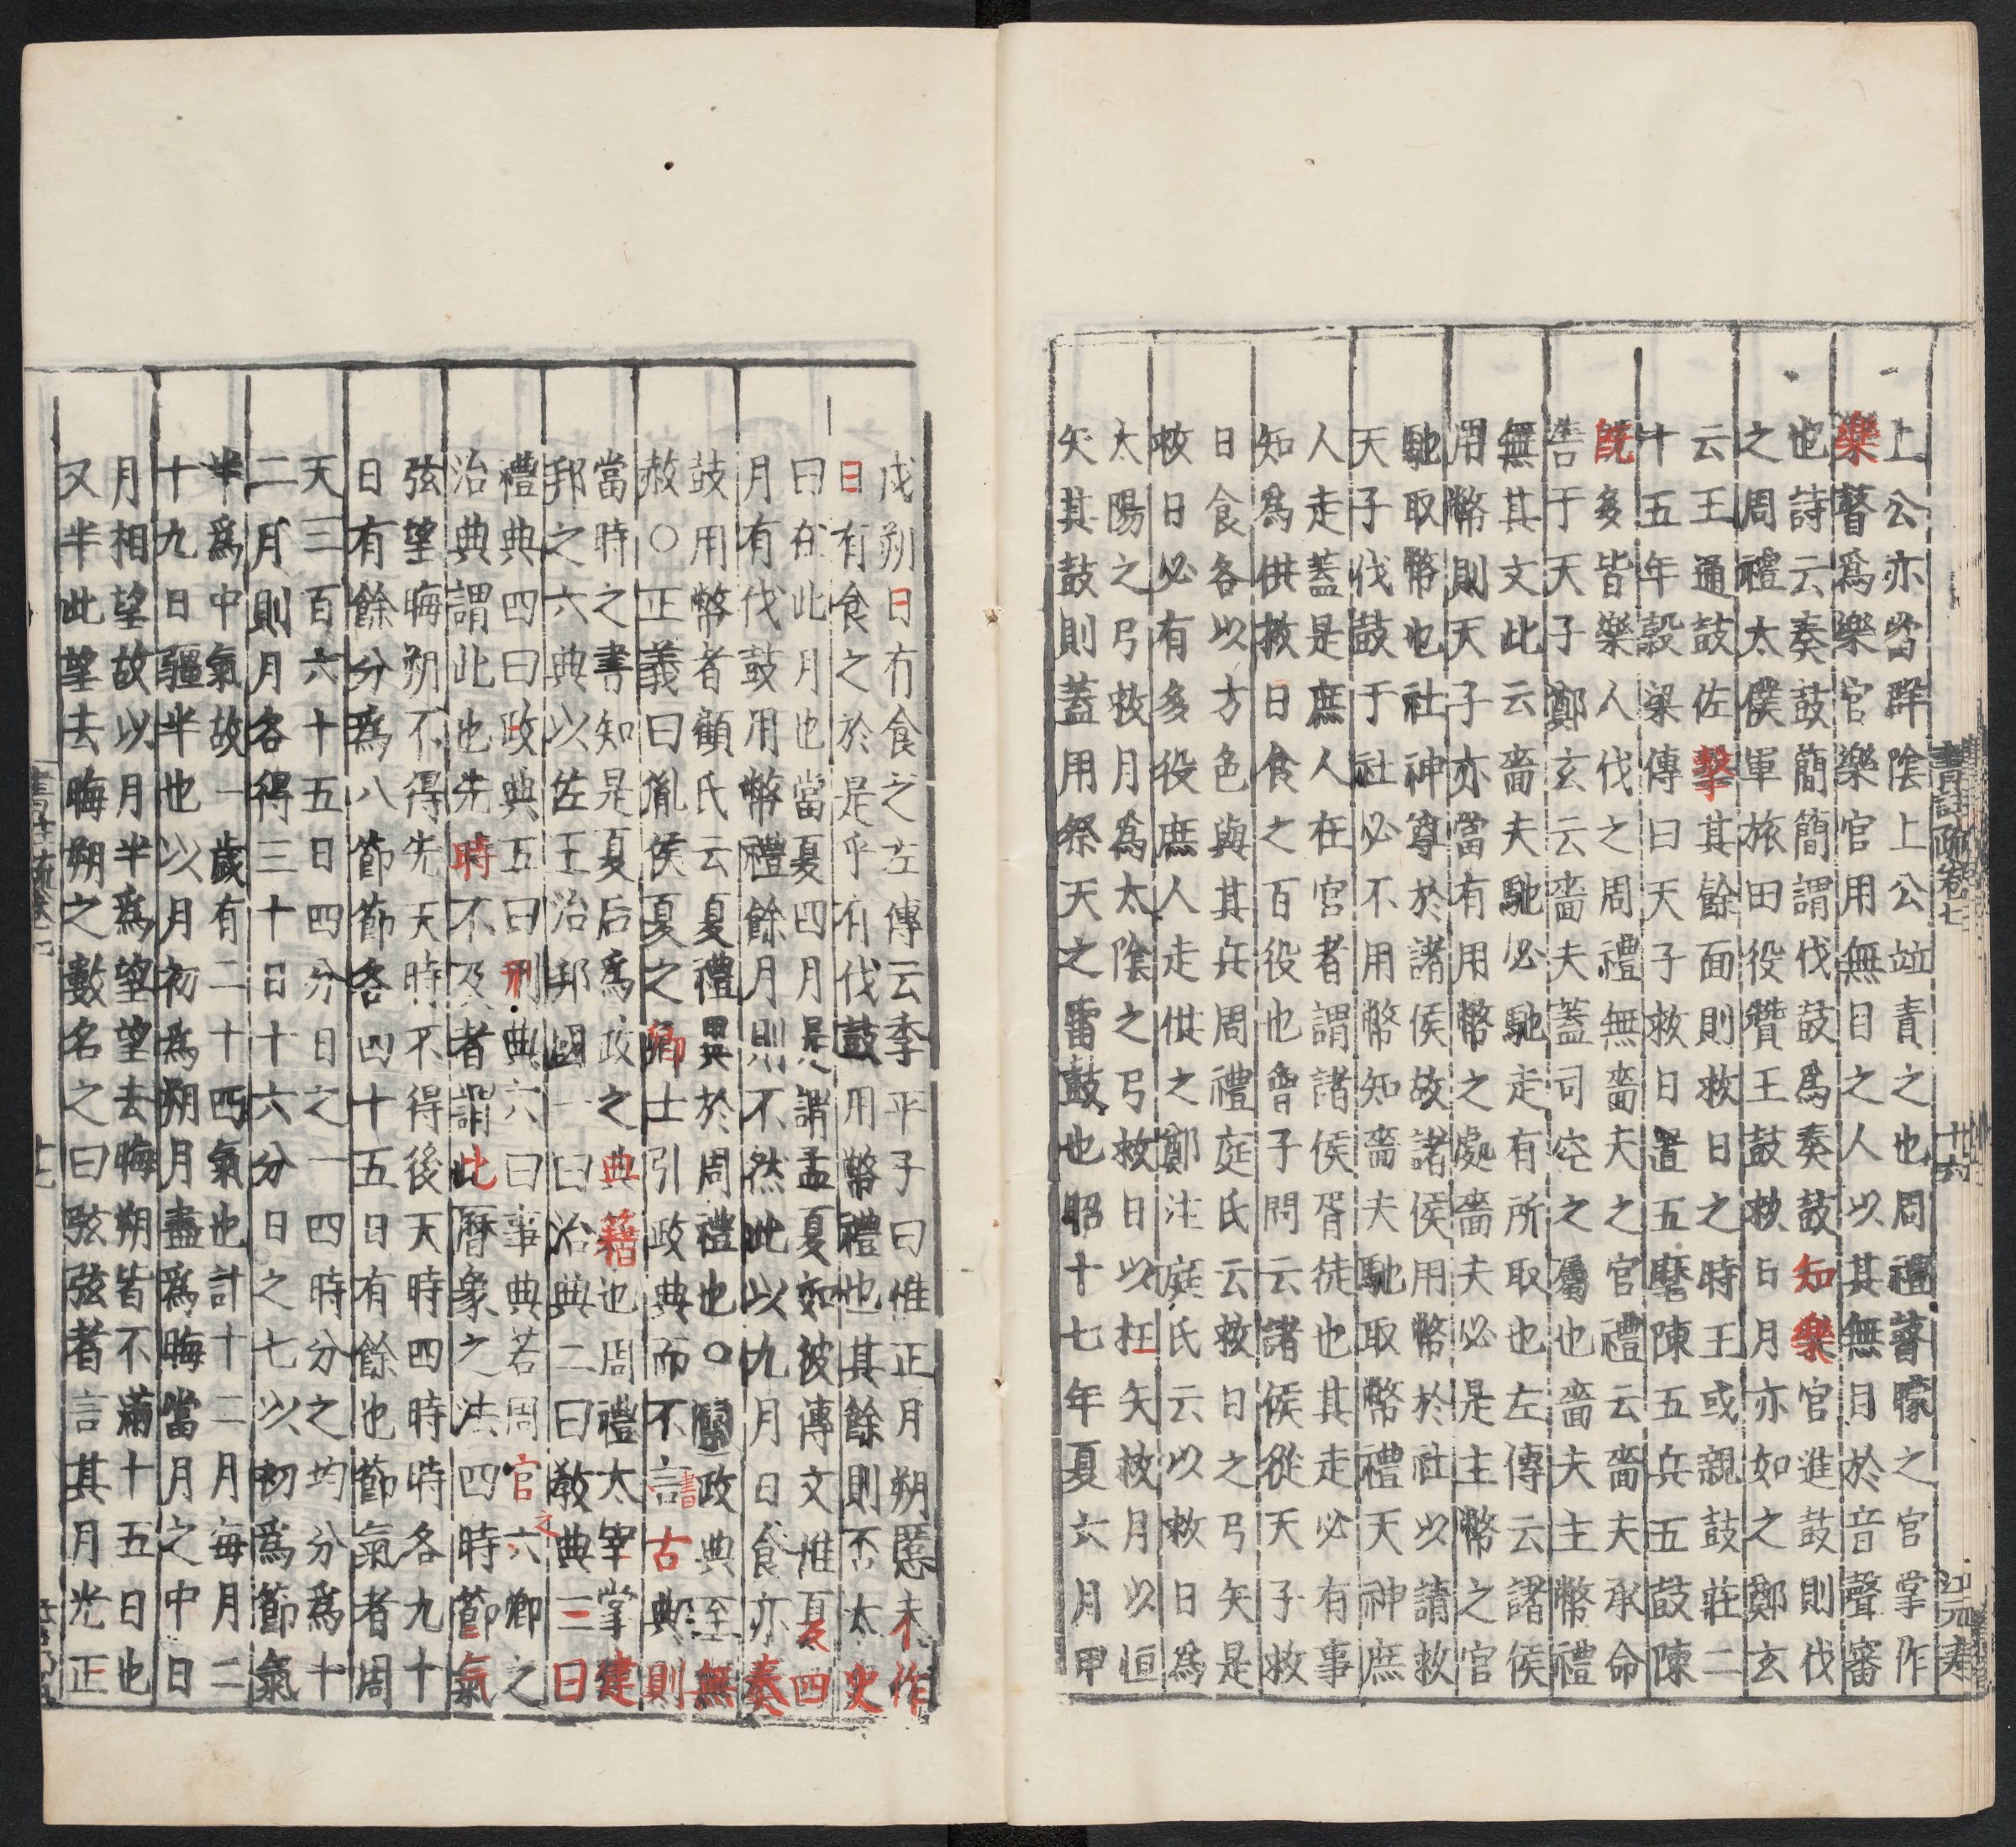 上公亦當群陰上公竝責之也周禮瞽矇之官掌作
樂瞽爲樂官樂官用無目之人以其無目於音聲審
也詩云奏鼓簡簡謂伐鼓爲奏鼓知樂官進鼓則伐
之周禮太僕軍旅田役贊王鼓救日月亦如之鄭玄
云王通鼓佐擊其餘面則救日之時王或親鼓莊二
十五年穀梁傳曰天子救日置五麾陳五兵五鼓陳
既多皆樂人伐之周禮無嗇夫之官禮云嗇夫承命
告于天子鄭玄云嗇夫蓋司空之屬也嗇夫主幣禮
無其文此云嗇夫馳必馳走有所取也左傳云諸侯
用幣則天子亦當有用幣之處嗇夫必是主幣之官
馳取幣也社神尊於諸侯故諸侯用幣於社以請救
天子伐鼓于社必不用幣知嗇夫馳取幣禮天神庶
人走蓋是庶人在官者謂諸侯胥徒也其走必有事
知爲供救日食之百役也曾子問云諸侯從天子救
日食各以方色與其兵周禮庭氏云救日之弓矢是
救日必有多役庶人走供之鄭注庭氏云以救日爲
太陽之弓救月爲太陰之弓救日以枉矢救月以恒
矢其鼓則蓋用祭天之雷鼓也昭十七年夏六月甲
書註疏卷七
十六
江元壽
戊朔日有食之左傳云季平子曰惟正月朔慝未作
日有食之於是乎有伐鼓用幣禮也其餘則否太史
曰在此月也當夏四月是謂孟夏如彼傳文惟夏四
月有伐鼓用幣禮餘月則不然此以九月日食亦奏
鼓用幣者顧氏云夏禮異於周禮也○傳政典至無
赦○正義曰胤侯夏之卿士引政典而不言古典則
當時之書知是夏后爲政之典籍也周禮太宰掌建
邦之六典以佐王治邦國一曰治典二曰教典三曰
禮典四曰政典五曰刑典六曰事典若周官六卿之
治典謂此也先時不及者謂此曆象之法四時節氣
弦望晦朔不得先天時不得後天時四時時各九十
日有餘分爲八節節各四十五日有餘也節氣者周
天三百六十五日四分日之一四時分之均分爲十
二月則月各得三十日十六分日之七以初爲節氣
半爲中氣故一歲有二十四氣也計十二月每月二
十九日疆半也以月初爲朔月盡爲晦當月之中日
月相望故以月半爲望望去晦朔皆不滿十五日也
又半此望去晦朔之數名之曰弦弦者言其月光正